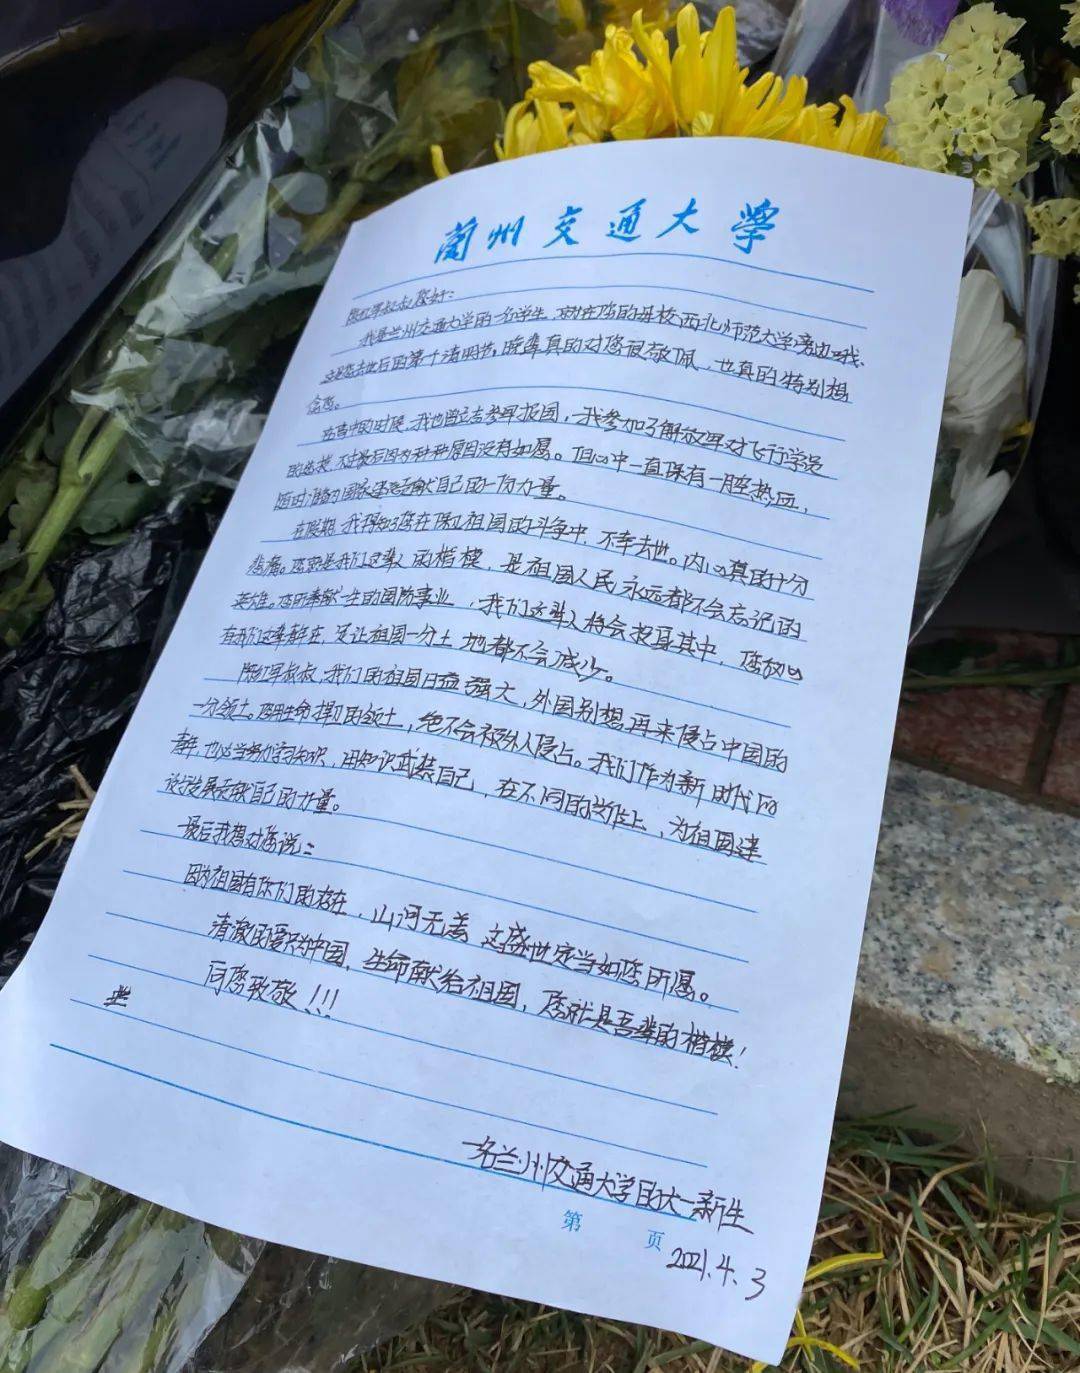 蘭州交通大學
陈红军叔叔您好:
我是兰州交通大学的一名学生,就在您的母校西北师范大学旁边哦.
这是您去世后的第一个清明节,晚辈真的对您很敬佩,也真的特别想
念您。
在高中的时候,我也曾立志参军报国,我参加了解放军对飞行学员
的选拔,不过最后因为种种原因没有如愿。但心中一直保有一腔热血,
随时准备为国家建设贡献自己的一份力量。
在假期,我得知了您在保卫祖国的斗争中,不幸去世。内心真的十分
悲痛。您就是我们这辈人的楷模,是祖国人民永远都不会忘记的
英雄。您所奉献一生的国防事业,我们这辈人将会投身其中,您放心
有我们这辈都在,定让祖国一分土地都不会减少。
陈红军叔叔,我们的祖国日益强大,外国别想再来侵占中国的
一分领土。您用生命捍卫的领土,绝不会被外人侵占。我们作为新时代的
青年,也应当努力学习知识,用知识武装自己,在不同的岗位上,为祖国建
设发展贡献自己的力量。
最后我想对您说:
因为祖国有你们的存在,山河无恙 这盛世定当如您所愿。
清澈的爱只为中国,生命献给祖国,您就是吾辈的楷模!
向您致敬!!!
一名兰州交通大学的大一新生
第 页
2021.4.3